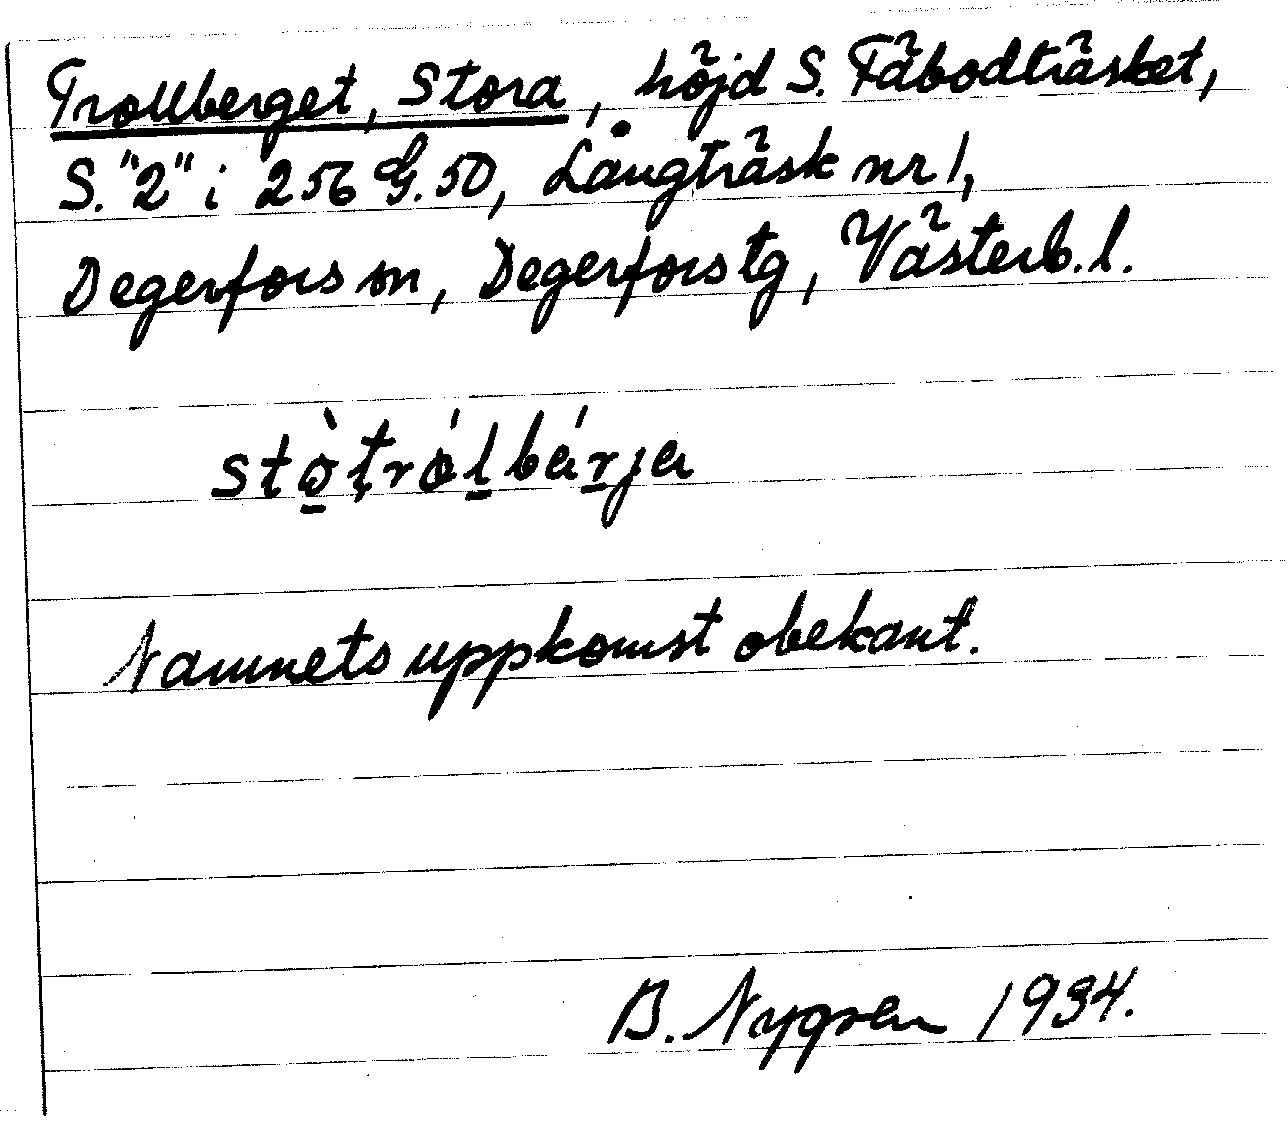 Trollberget, Stora, höjd S. Fäbodträsket,
S. "2" i 256 G. 50, Långträsk nr 1,
Degerfors sn, Degerfors tg, Västerb. l.
stò̠ṭról̠bár̠ja
Namnets uppkomst obekant.
B. Nygren 1934.